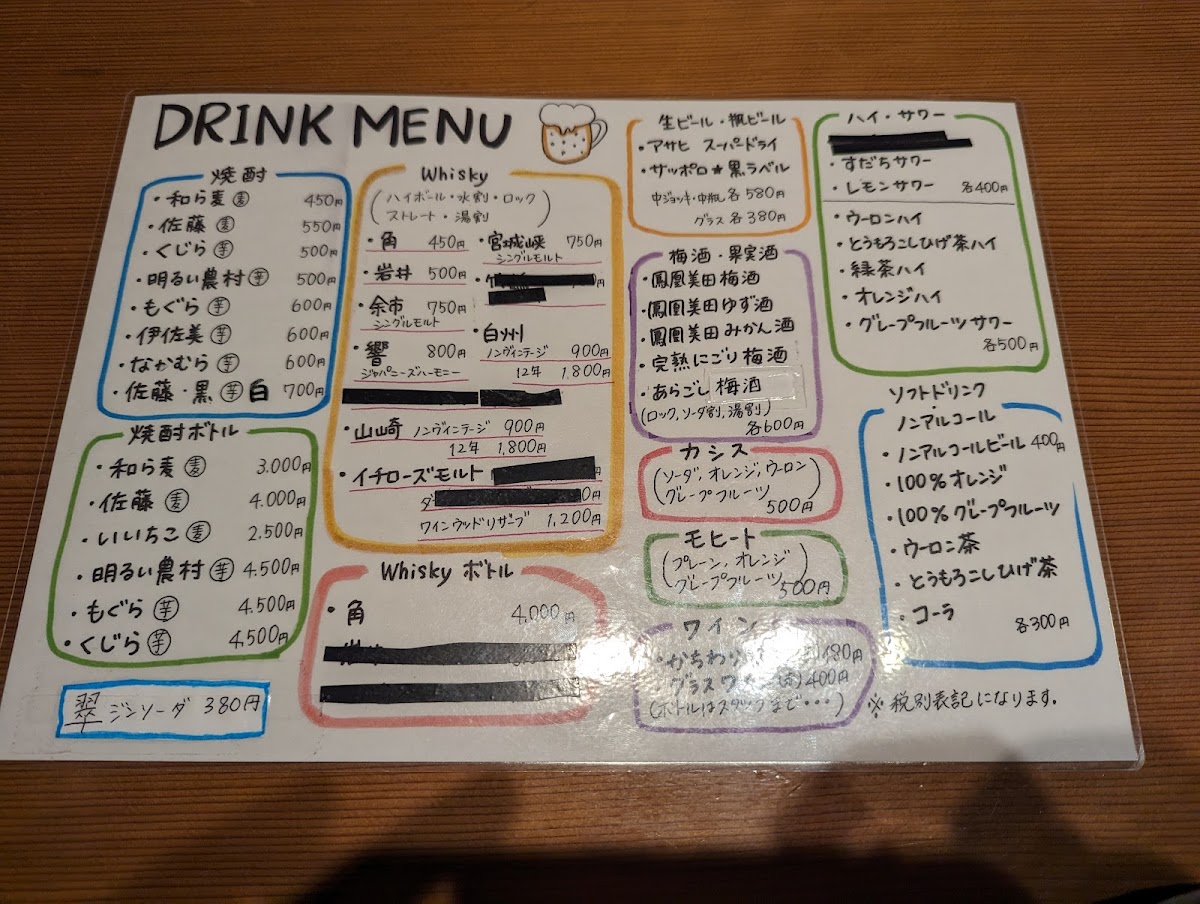 DRINK MENU
焼酎
・和ら麦 麦 450円
・佐藤 麦 550円
・くじら 芋 500円
・明るい農村 芋 500円
・もぐら 芋 600円
・伊佐美 芋 600円
・なかむら 芋 600円
・佐藤・黒 芋 白 700円
焼酎ボトル
・和ら麦 麦 3.000円
・佐藤 麦 4.000円
・いいちこ 麦 2.500円
・明るい農村 芋 4.500円
・もぐら 芋 4.500円
・くじら 芋 4,500円
翠 ジンソーダ 380円
Whisky
(ハイボール・水割・ロック
ストレート・湯割)
・角 450円
・岩井 500円
・余市 750円
シングルモルト
・響 800円
ジャパニーズハーモニー
・宮城峡 750円
シングルモルト
・白州
ノンヴィンテージ 900円
12年 1,800円
・山崎 ノンヴィンテージ 900円
12年 1,800円
・イチローズモルト
ワインウッドリザーブ 1,200円
Whisky ボトル
・角 4,000円
生ビール・瓶ビール
・アサヒ スーパードライ
・サッポロ★黒ラベル
中ジョッキ・中瓶 各580円
グラス 各380円
梅酒・果実酒
・鳳凰美田梅酒
・鳳凰美田ゆず酒
・鳳凰美田みかん酒
・完熟にごり梅酒
・あらごし梅酒
(ロック,ソーダ割,湯割)
各600円
カシス
(ソーダ,オレンジ,ウーロン
グレープフルーツ)
500円
モヒート
(プレーン,オレンジ
グレープフルーツ) 500円
ワイン
・かちわり
・グラスワイン 400円
(ボトルはスタッフまで・・・)
ハイ・サワー
・すだちサワー
・レモンサワー 各400円
・ウーロンハイ
・とうもろこしひげ茶ハイ
・緑茶ハイ
・オレンジハイ
・グレープフルーツサワー
各500円
ソフトドリンク
ノンアルコール
・ノンアルコールビール 400円
・100%オレンジ
・100%グレープフルーツ
・ウーロン茶
・とうもろこしひげ茶
・コーラ 各300円
※税別表記になります。